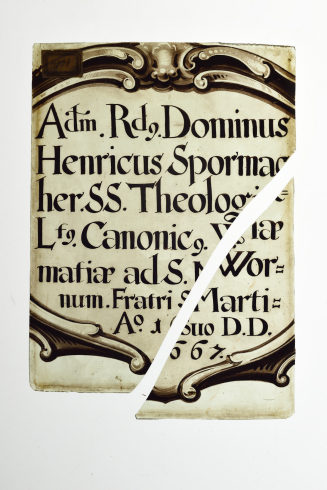 Adm̃. Rdꝯ. Dominus
Henricus Spormac
her. SS. Theologiæ
Ltꝯ. Canonicꝯ. 
matiæ ad S. Wor=
num. Fratri Marti=
Aº. 1 suo D.D.
667.